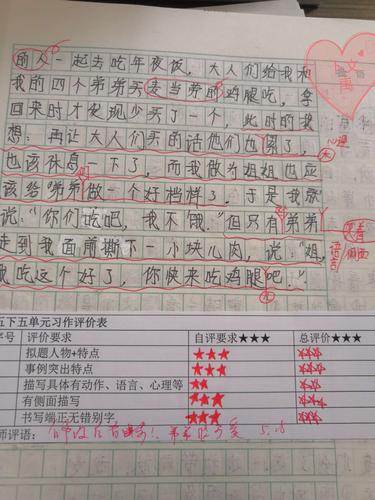 的人一起去吃年夜饭,大人们给我和
我的四个弟弟买麦当劳的鸡腿吃,拿
回来时才发现少买了一个,此时的我
想:再让大人们买的话他们也累了,
也该休息一下了,而我做为姐姐也应
该给弟弟做一个好档样了,于是我就
说:“你们吃吧,我不饿。”但只有弟弟
走到我面前撕下一小块儿肉,说:“姐,
我吃这个好了,你快来吃鸡腿吧!”
心理
侧面
语言
五下五单元习作评价表
序号 评价要求 自评要求★★★ 总评价★★★
拟题人物+特点 ★★★
事例突出特点 ★★★
描写具体有动作、语言、心理等 ★★
有侧面描写 ★★★
书写端正无错别字 ★★★
师评语: